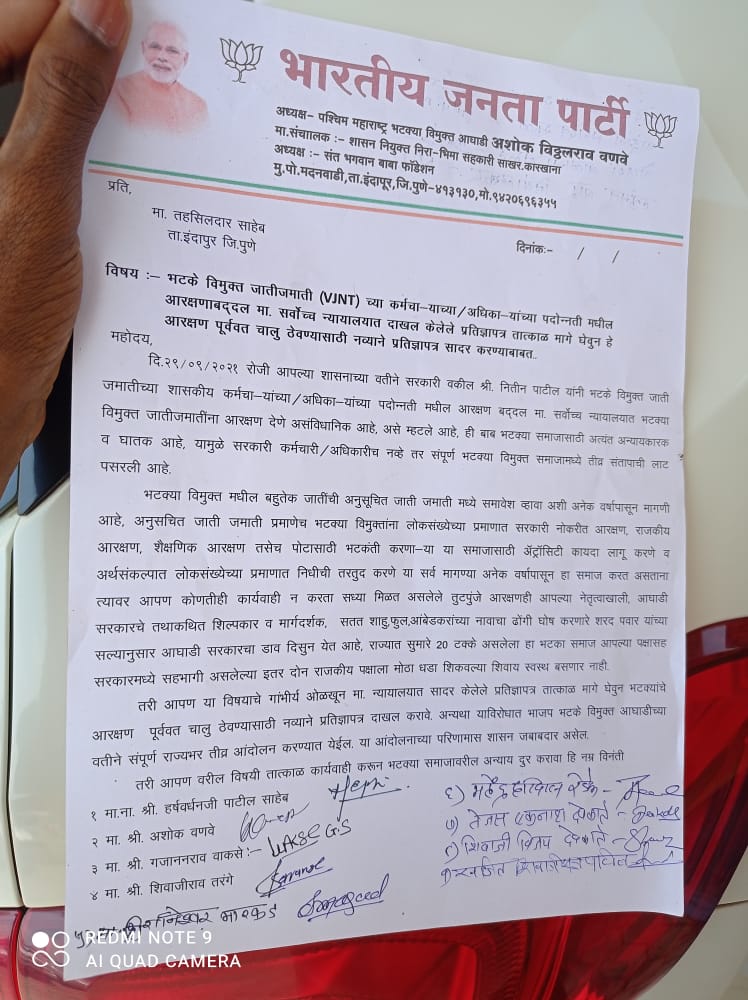 भारतीय जनता पार्टी
अध्यक्ष– पश्चिम महाराष्ट्र भटक्या विमुक्त आघाडी अशोक विठ्ठलराव वणवे
मा.संचाालक :– शासन नियुक्त निरा-भिमा सहकारी साखर.कारखाना
अध्यक्ष :– संत भगवान बाबा फॉडेशन
मु.पो.मदनवाडी,ता.इंदापूर,जि.पुणे–४१३१३०,मो.९४२०६९६३५५
प्रति,
मा. तहसिलदार साहेब
ता.इंदापुर जि.पुणे
दिनांकः- / /
विषय :– भटके विमुक्त जातीजमाती (VJNT) च्या कर्मचा–याच्या/अधिका–यांच्या पदोन्नती मधील
आरक्षणाबद्दल मा. सर्वोच्च न्यायालयात दाखल केलेले प्रतिज्ञापत्र तात्काळ मागे घेवुन हे
आरक्षण पूर्ववत चालु ठेवण्यासाठी नव्याने प्रतिज्ञापत्र सादर करण्याबाबत..
महोदय,
दि.२९/०९/२०२१ रोजी आपल्या शासनाच्या वतीने सरकारी वकील श्री. नितीन पाटील यांनी भटके विमुक्त जाती
जमातीच्या शासकीय कर्मचा–यांच्या/अधिका–यांच्या पदोन्नती मधील आरक्षण बद्दल मा. सर्वोच्च न्यायालयात भटक्या
विमुक्त जातीजमातींना आरक्षण देणे असंविधानिक आहे, असे म्हटले आहे, ही बाब भटक्या समाजासाठी अत्यंत अन्यायकारक
व घातक आहे, यामुळे सरकारी कर्मचारी/अधिकारीच नव्हे तर संपूर्ण भटक्या विमुक्त समाजामध्ये तीव्र संतापाची लाट
पसरली आहे.
भटक्या विमुक्त मधील बहुतेक जातींची अनुसूचित जाती जमाती मध्ये समावेश व्हावा अशी अनेक वर्षापासून मागणी
आहे, अनुसचित जाती जमाती प्रमाणेच भटक्या विमुक्तांना लोकसंख्येच्या प्रमाणात सरकारी नोकरीत आरक्षण, राजकीय
आरक्षण, शैक्षणिक आरक्षण तसेच पोटासाठी भटकंती करणा–या या समाजासाठी ॲट्रॉसिटी कायदा लागू करणे व
अर्थसंकल्पात लोकसंख्येच्या प्रमाणात निधीची तरतुद करणे या सर्व मागण्या अनेक वर्षापासून हा समाज करत असताना
त्यावर आपण कोणतीही कार्यवाही न करता सध्या मिळत असलेले तुटपुंजे आरक्षणही आपल्या नेतृत्वाखाली, आघाडी
सरकारचे तथाकथित शिल्पकार व मार्गदर्शक, सतत शाहु,फुल,आंबेडकरांच्या नावाचा ढोंगी घोष करणारे शरद पवार यांच्या
सल्यानुसार आघाडी सरकारचा डाव दिसुन येत आहे, राज्यात सुमारे 20 टक्के असलेला हा भटका समाज आपल्या पक्षासह
सरकारमध्ये सहभागी असलेल्या इतर दोन राजकीय पक्षाला मोठा धडा शिकवल्या शिवाय स्वस्थ बसणार नाही.
तरी आपण या विषयाचे गांभीर्य ओळखून मा. न्यायालयात सादर केलेले प्रतिज्ञापत्र तात्काळ मागे घेवुन भटक्यांचे
आरक्षण पूर्ववत चालु ठेवण्यासाठी नव्याने प्रतिज्ञापत्र दाखल करावे. अन्यथा याविरोधात भाजप भटके विमुक्त आघाडीच्या
वतीने संपूर्ण राज्यभर तीव्र आंदोलन करण्यात येईल. या आंदोलनाच्या परिणामास शासन जबाबदार असेल.
तरी आपण वरील विषयी तात्काळ कार्यवाही करून भटक्या समाजावरील अन्याय दुर करावा हि नम्र विनंती
१ मा.ना. श्री. हर्षवर्धनजी पाटील साहेब
२ मा. श्री. अशोक वणवे
३ मा. श्री. गजाननराव वाकसे :– WAKSE G.S
४ मा. श्री. शिवाजीराव तरंगे
७) तेजस एकनाथ देवकाते
८) शिवाजी विजय देवकाते
REDMI NOTE 9
AI QUAD CAMERA